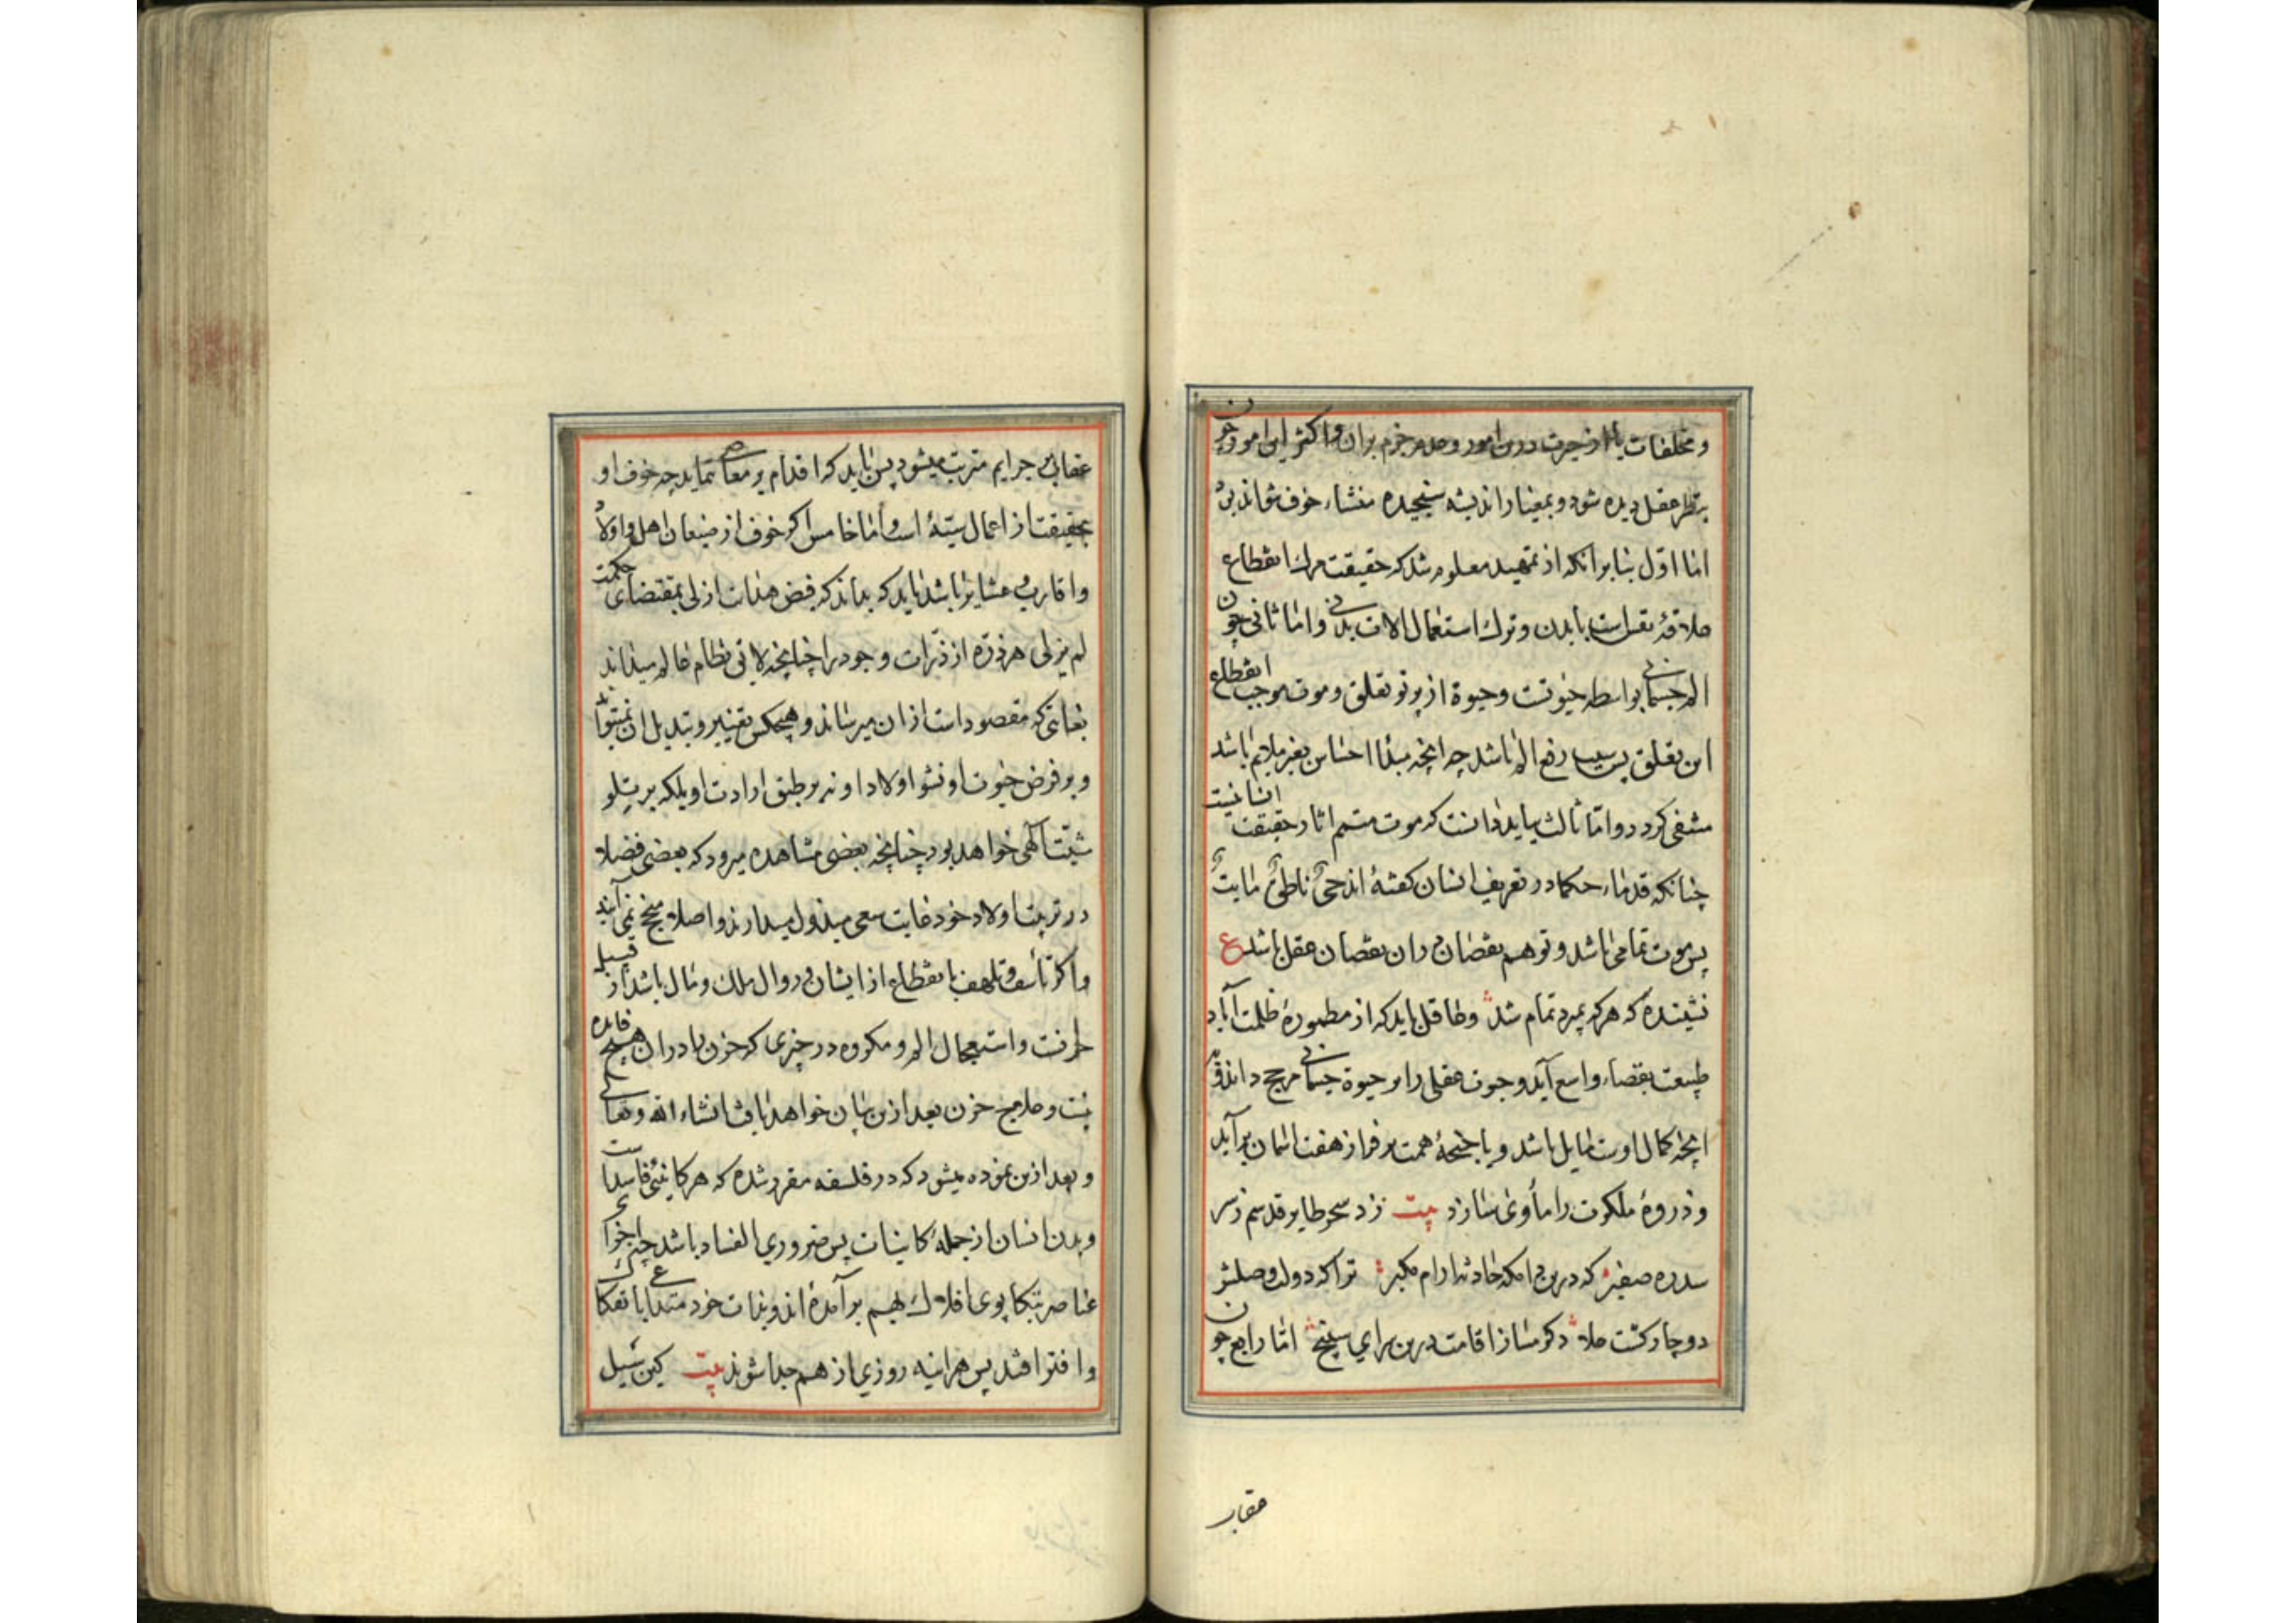 و مخلفات یا از حیرت درین امور و عدم جزم بران و اکثر این امور چون
بنظر عقل دیده شود و بمعیار اندیشه سنجیده منشاء خوف نتواند بود
اما اول بنا بر انکه از تمهید معلوم شد که حقیقت مرک انقطاع
علاقهٔ نفس است با بدن و ترک استعمال الات بدنی و اما ثانی چون
الم جسمانی بواسطه حیوتست و حیوة از پرتو تعلق و موت موجب انقطاع
این تعلق پس سبب رفع الم باشد چه انچه مبدأ احساس بغیر ملایم باشد
منتفی کردد و اما ثالث بباید دانست که موت متمم اثار حقیقت انسانیست
چنانکه قدماء حکما در تعریف انسان کفته‌ٔ اند حیٌّ ناطقٌ مایتٌ
پس موت تمامی باشد و توهم نقصان دران نقصان عقل باشد ع
نشنیدهٔ که هر که بمرد تمام شد و عاقل باید که از مطمورهٔ ظلمت آباد
طبیعت بفضاء واسع آید و حیوت عقلی را بر حیوة جسمانی مرجح داند و
انچه کمال اوست مایل باشد و باجنحهٔ همت بر فراز هفت اسمان برآید
و ذروهٔ ملکوت را مأوی سازد بیت زد سحر طایر قدسم ز سر
سدره صفیر که درین دامکه حادثه ارام مکیر ترا که دولت وصلش
دوچار کشت علا دکر مساز اقامت درین سرای سپنج اما رابع چون
عقاب
عقاب بر جرایم مترتب میشود پس باید که اقدام بر معاصی ننماید چه خوف او
بحقیقت از اعمال سیّئهٔ است و اما خامس اکر خوف از ضیعان اهل و اولاد
و اقارب و عشایر باشد باید که بداند که فیض هدایت ازلی بمقتضای حکمت
لم یزلی هر ذرّه از ذرّات وجود را چنانچه لایق نظام عالم میداند
بغایتی که مقصود است ازان میرساند و هیچکس تغییر و تبدیل ان نمیتواند
و بر فرض حیوت او نشو اولاد او نه بر طبق ارادت او بلکه بر
مشیّت آلهی خواهد بود چنانچه بعضی مشاهده میرود که بعضی فضلا
در تربیت اولاد خود غایت سعی مبذول میدارند و اصلا منجح نمی آیند
و اکر تأسف و تلهف بانقطاع از ایشان و زوال ملک و مال باشد از قبیل
حزنست و استعجال الم و مکروه در چیزی که حزن را دران هیچ فایده
نیست و علاج حزن بعد ازین بیان خواهد یافت انشاء الله تعالی
و بعد ازین نموده میشود که در فلسفه مقرر شده که هر کاینی فاسد است
و بدن انسان از جملهٔ کاینات پس ضروری الفساد باشد چه اجزای
عناصر بتکاپوی افلاک بهم برآمده‌ٔ اند و بذات خود متداعی بانفکاک
و افتراقند پس هراینه روزی از هم جدا شوند بیت کین سیل